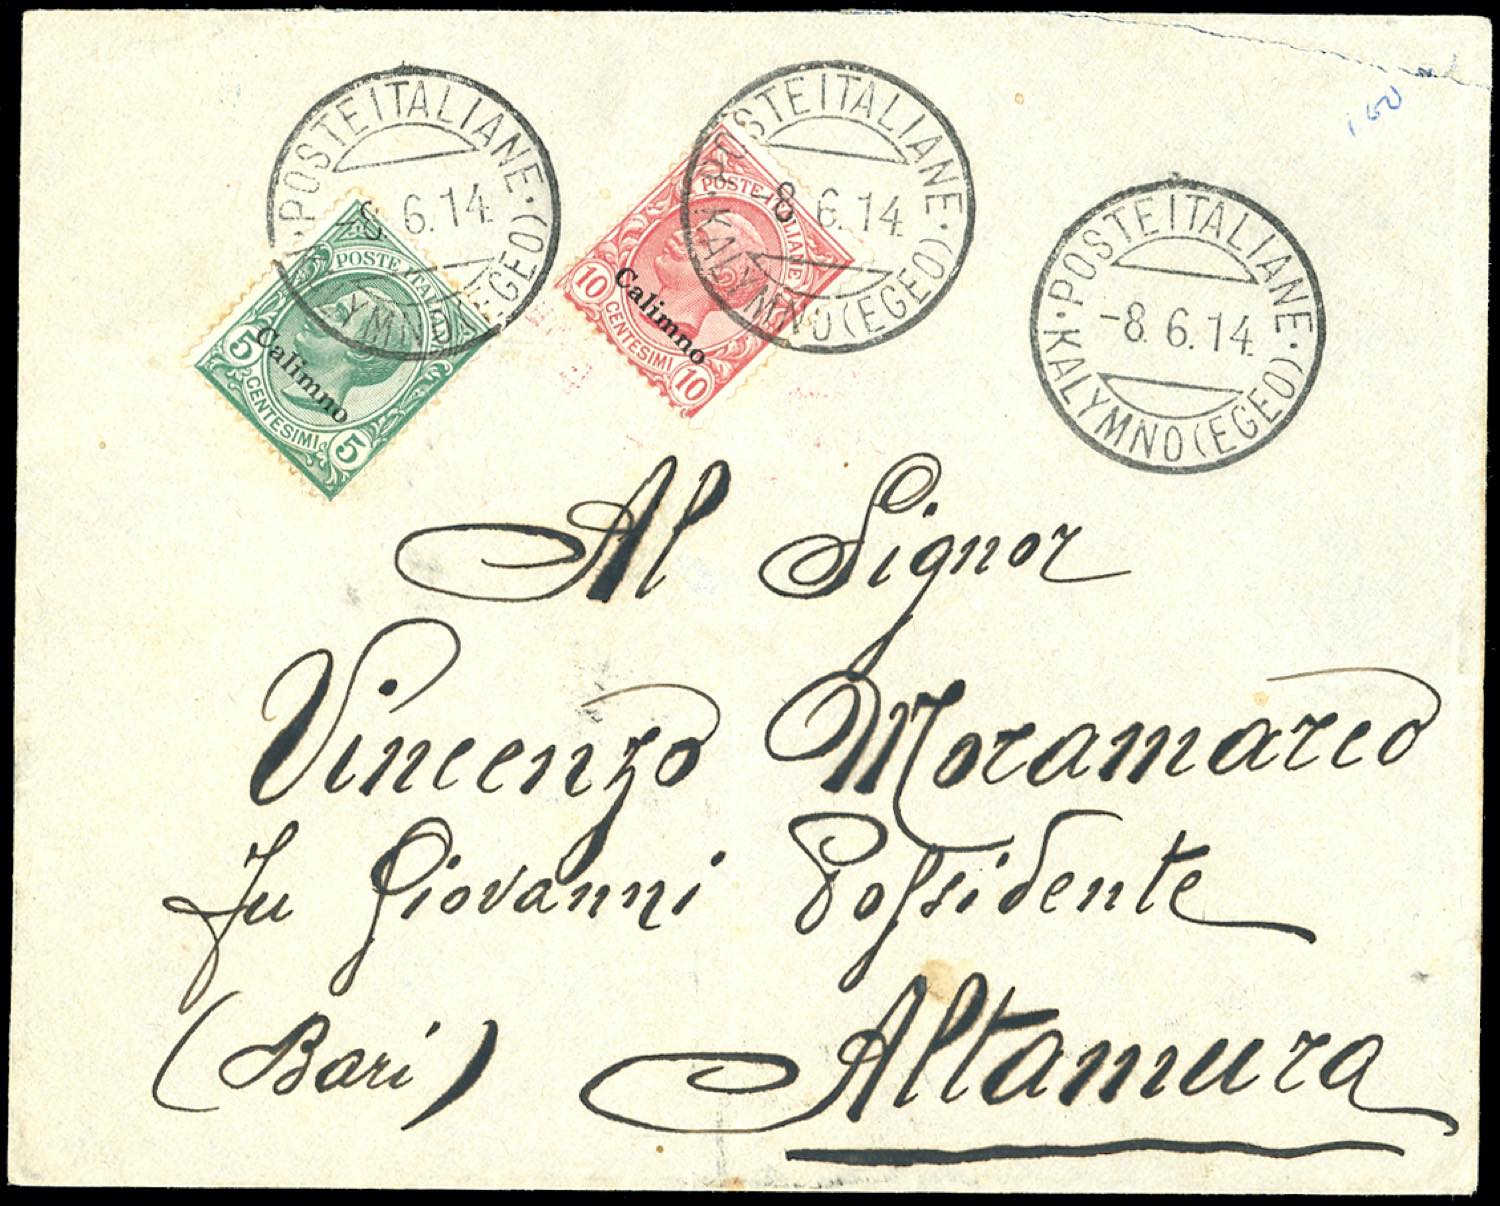 POSTE ITALIANE
-8. 6. 14.
KALYMNO (EGEO)
POSTE ITALIANE
-8 6. 14.
KALYMNO (EGEO)
POSTE ITALIANE
-8. 6. 14.
KALYMNO (EGEO)
POSTE ITALIANE
Calimno
5 CENTESIMI 5
POSTE ITALIANE
Calimno
10 CENTESIMI 10
Al Signor
Vincenzo Moramarco
fu Giovanni Possidente
(Bari) Altamura